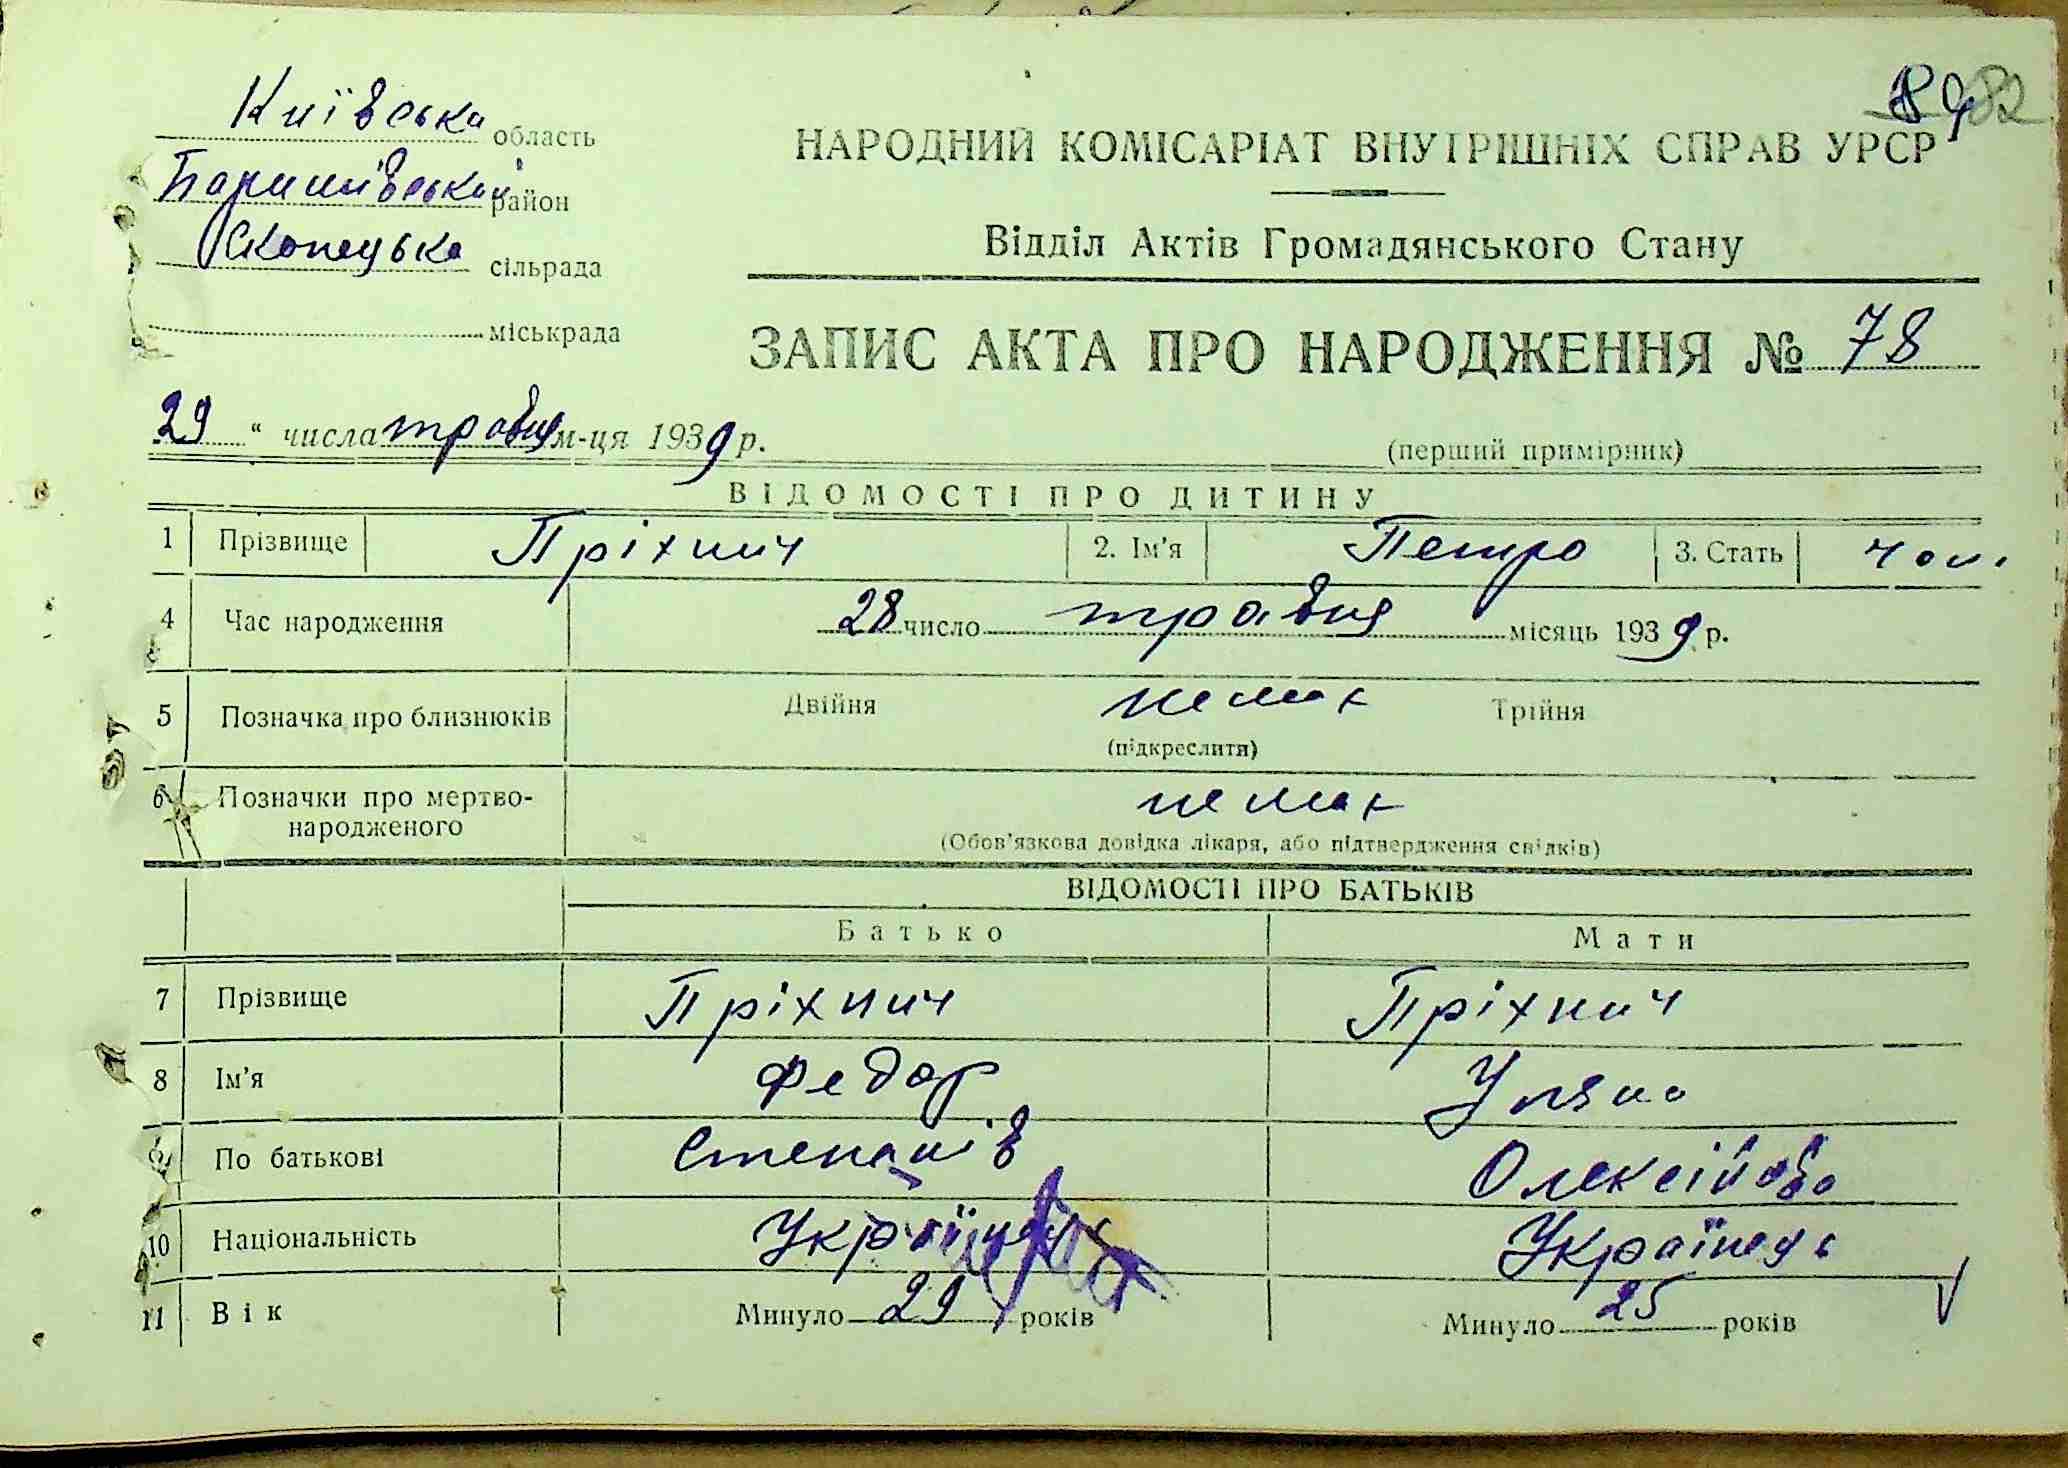 Київська область
Баришівський район
Скопецька сільрада
міськрада
82
НАРОДНИЙ КОМІСАРІАТ ВНУТРІШНІХ СПРАВ УРСР
Відділ Актів Громадянського Стану
ЗАПИС АКТА ПРО НАРОДЖЕННЯ № 78
29 " числа травня м-ця 1939 р.
(перший примірник)
ВІДОМОСТІ ПРО ДИТИНУ
1 Прізвище Пріхнич 2. Ім'я Петро 3. Стать чол.
4 Час народження 28 число травня місяць 1939 р.
5 Позначка про близнюків Двійня немає Трійня
(підкреслити)
6 Позначки про мертво-
народженого немає
(Обов'язкова довідка лікаря, або підтвердження свідків)
ВІДОМОСТІ ПРО БАТЬКІВ
Батько Мати
7 Прізвище Пріхнич Пріхнич
8 Ім'я Федор Уляна
9 По батькові Степанів Олексійова
10 Національність Українець Українець
11 Вік Минуло 29 років Минуло 25 років